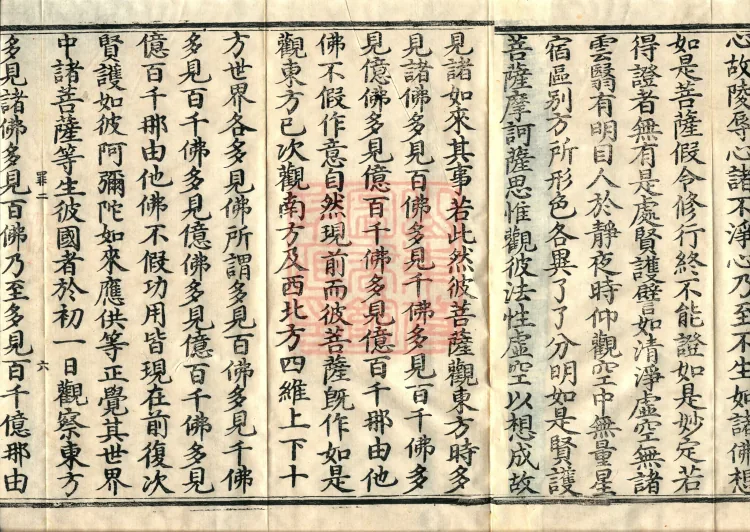 心故陵辱心諸不淨心乃至不生如諸佛想
如是菩薩假令修行終不能證如是妙定若
得證者無有是處賢護譬如清淨虛空無諸
雲翳有明目人於靜夜時仰觀空中無量星
宿區別方所形色各異了了分明如是賢護
菩薩摩訶薩思惟觀彼法性虛空以想成故
見諸如來其事若此然彼菩薩觀東方時多
見諸佛多見百佛多見千佛多見百千佛多
見億佛多見億百千佛多見億百千那由他
佛不假作意自然現前而彼菩薩旣作如是
觀東方已次觀南方及西北方四維上下十
方世界各多見佛所謂多見百佛多見千佛
多見百千佛多見億佛多見億百千佛多見
億百千那由他佛不假功用皆現在前復次
賢護如彼阿彌陀如來應供等正覺其世界
中諸菩薩等生彼國者於初一日觀察東方
罪二 六
多見諸佛多見百佛乃至多見百千億那由